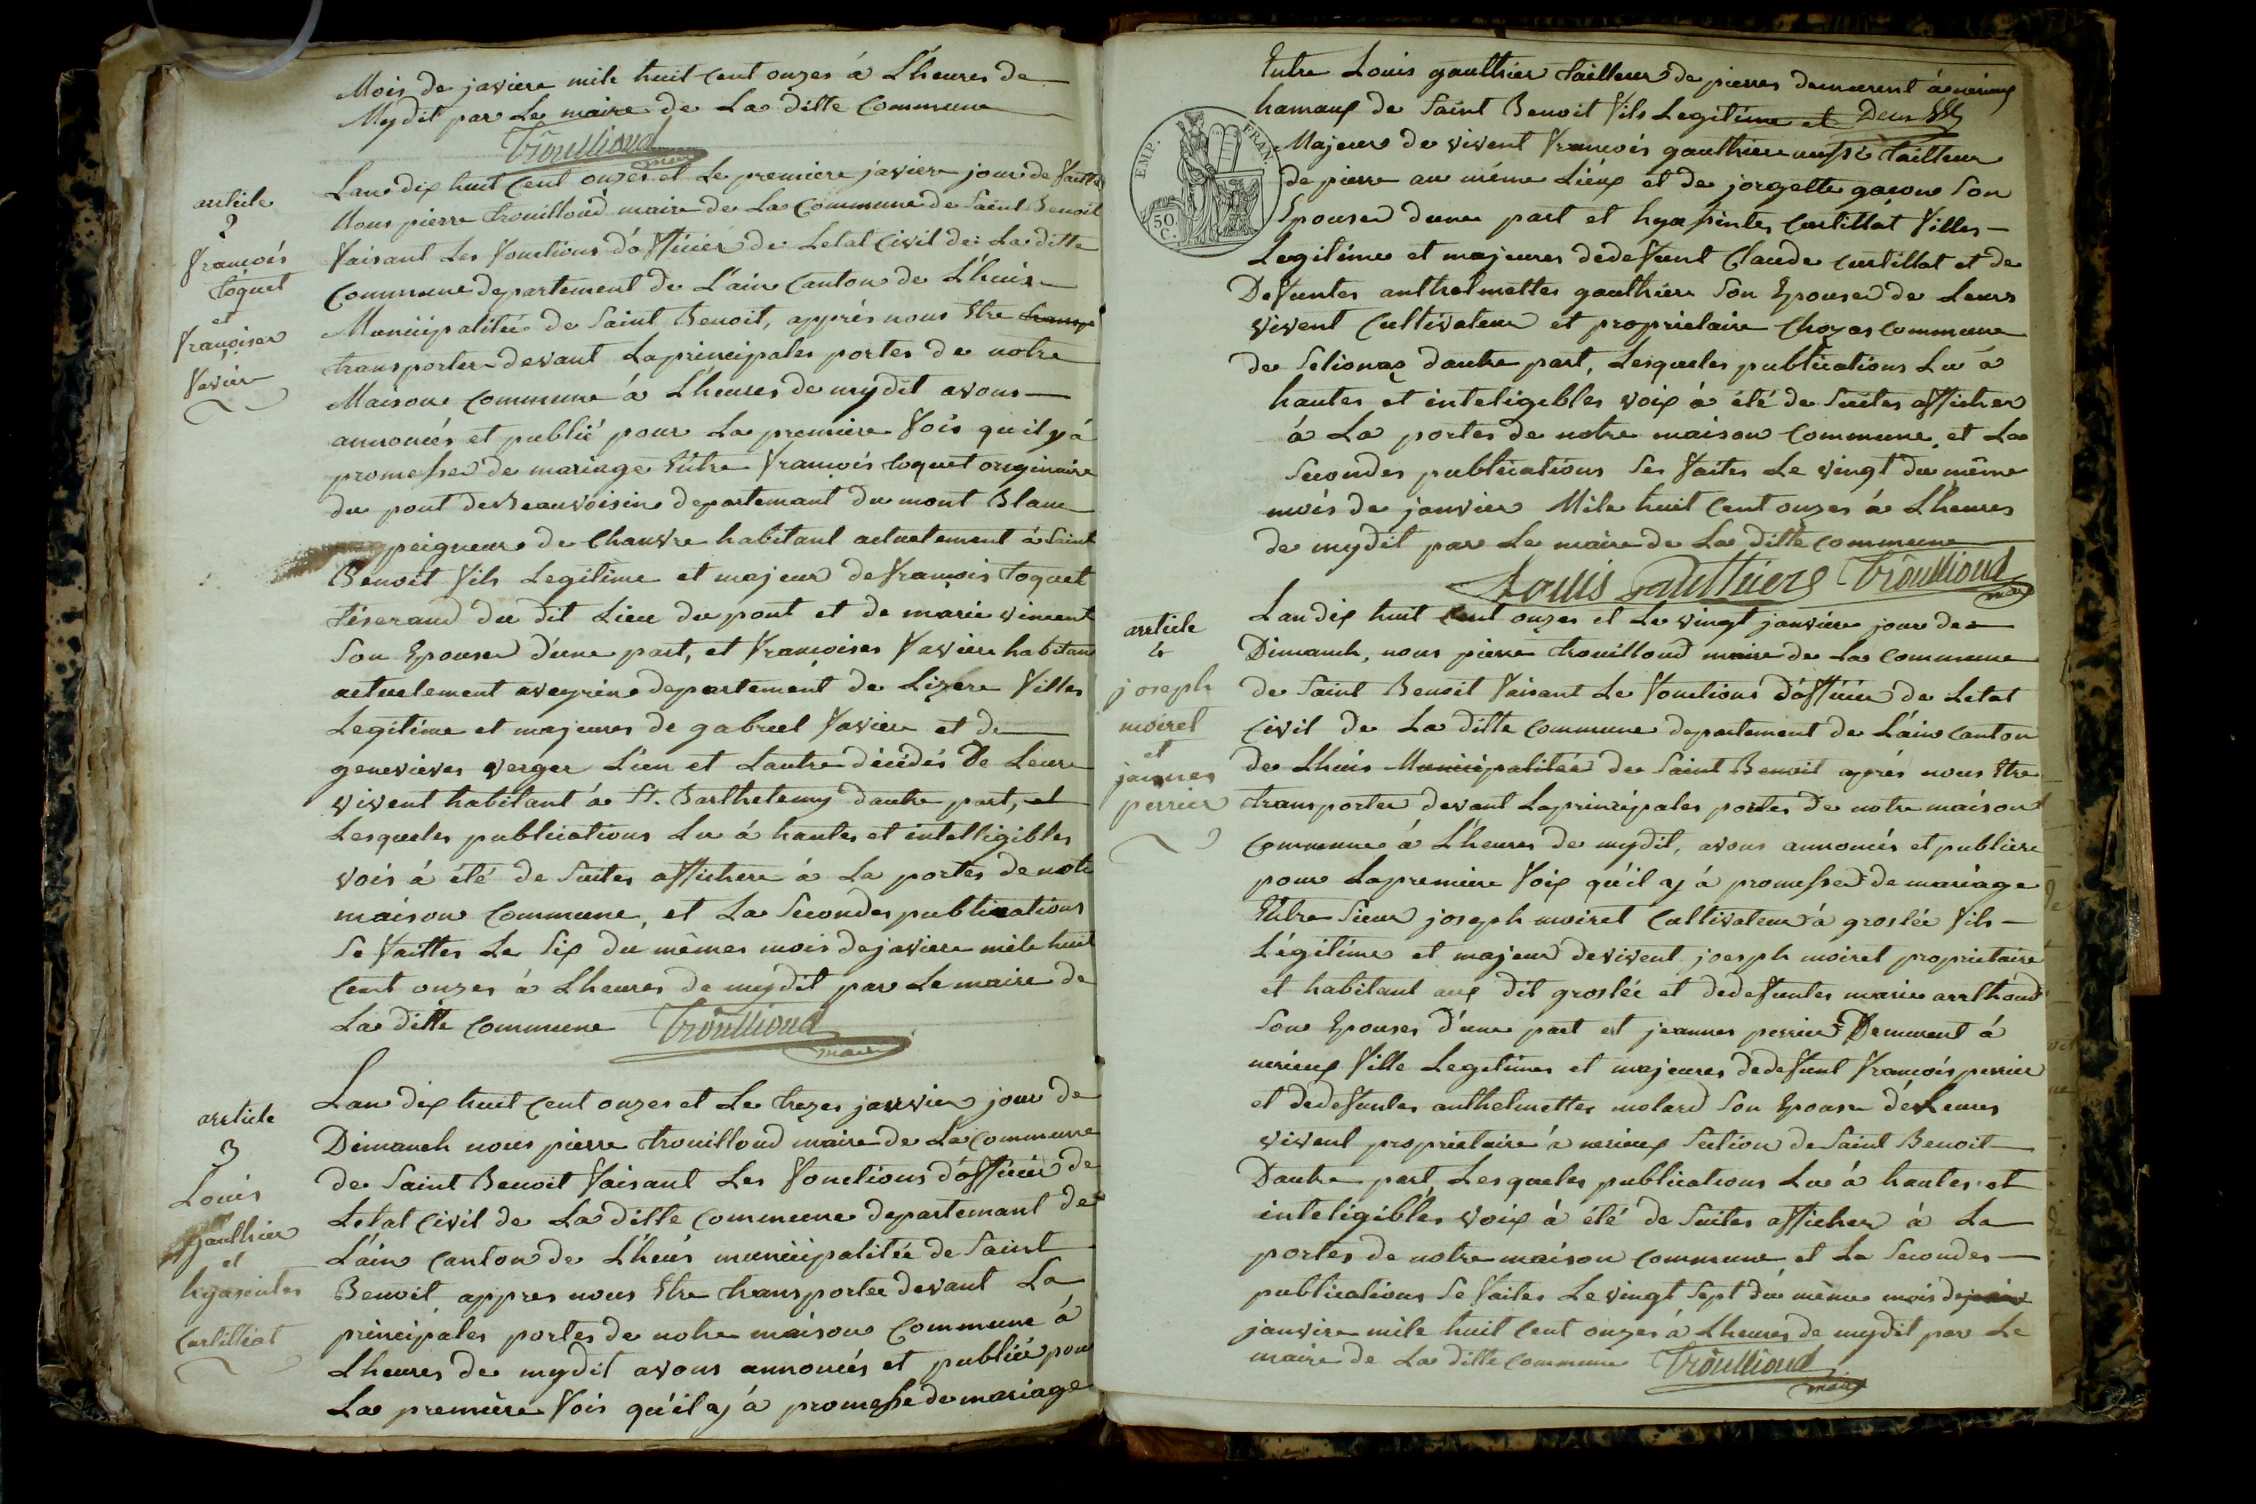 Mois de javiere mile huit cent onzes á Lheures de
Mydit par Le maire de La ditte Commune
Trôullioud
maire
article
2
Francois
toquet
et
françoises
Favier
Lan dix huit cent onzes et Le premiere javiere jour de faitte
Nous pierre trouilloud maire de La Commune de Saint Benoit
faisant Les fonctions d'officier de Letat Civil de La ditte
Commune departement de L'ain Canton de L'huis
Municipalitée de Saint Benoit, apprés nous Etre transp
transporter devant La principales portes de notre
Maison commune á L'heures de mydit avons
annoncés et publié pour La premiere fois qu'il y á
promesse de mariage Entre francois toquet originaire
du pont de Beauvoisin departemant du mont Blanc
peigneur de Chanvre habitant actuelement á Saint
Benoit fils Legitime et majeur de francois toquet
tiserand du dit Lieu du pont et de marie vincent
Son Epouse d'une part, et françoises favier habitant
actuelement a veyrin departement de Lizere filles
Legitime et majeures de gabriel favier et de
genevieves verger Lun et Lautre décédés De Leure
vivent habitant á St. Barthelemy dautre part, et
Lesqueles publications Lu á hautes et intelligibles
vois á été de Suites affichere á La portes de notre
maison Commune, et La Secondes publications
Se faittes Le Six du mêmes mois de javiere mile huit
Cent onzes á Lheures de mydit par Le maire de
La ditte commune Trôullioud
maire
article
3
Louis
gauthier
et
hyasintes
Cartilliat
Lan dix huit cent onzes et Le trezes janvier jour de
Dimanch nous pierre trouilloud maire de La Commune
de Saint Benoit faisant Les fonctions d'officier de
Letat Civil de La ditte commune departemant de
L'ain Canton de L'huis municipalitée de Saint
Benoit appres nous Etre transportée devant La
principales portes de notre maison Commune á
Lheures de mydit avons annoncés et publiée pour
La première fois qu'il y á promesse de mariage
EMP. FRAN.
50 C.
Entre Louis gauthier tailleur de pierres demeurent á nerieux
hamaux de Saint Benoit fils Legitime et
Majeur de vivent francois gauthier aussi tailleur
de pierre au même Lieux et de jorgette gacon Son
Epouse dune part et hyasintes Cartillat filles
Legitime et majeures de defunt Claude Cartillat et de
Defuntes anthelmettes gauthier Son Epouse de Leurs
vivent Cultivateur et proprietaire Chozas commune
de Selionas dautre part, Lesqueles publications Lu á
hautes et inteligibles voix á été de Suites afficher
á La portes de notre maison Commune, et La
Secondes publications Ses faites Le vingt du même
mois de janvier Mile huit Cent onzes á Lheures
de mydit par Le maire de La ditte commune
Louis Gauthiere Trôullioud
maire
article
4
joseph
moiret
et
jaennes
perrier
Lan dix huit cent onzes et Le vingt janviere jour de
Dimanch, nous pierre trouilloud maire de La Commune
de Saint Benoit faisant Le fonctions d'officier de Letat
Civil de La ditte Commune departement de L'ain Canton
de Lhuis Municipalitée de Saint Benoit aprés nous Etre
transporter devant La principales portes De notre maison
Commune á L'heures de mydit, avons annoncés et publiere
pour La premiere foix qu'il y á promesse de mariage
Entre Sieur joseph moiret Cultivateur á groslée fils
Légitime et majeur de vivent joesph moiret proprietaire
et habitant aux dit groslée et de defuntes marie arrlhoud
Son Epouses d'une part et jeannes perrier Demurent á
nerieux fille Legitimes et majeures de defunt francois perrier
et de defuntes anthelmettes molard Son Epouse de Leures
vivent proprietaire á nerieux Section de Saint Benoit
Dautre part Lesqueles publications Lu á hautes et
inteligibles voix á été de Suites afficher á La
portes de notre maison commune et La Secondes
publications Se faites Le vingt Sept du même mois de
janvire mile huit Cent onzes á Lheures de mydit par Le
maire de La ditte Commune Trôullioud
maire